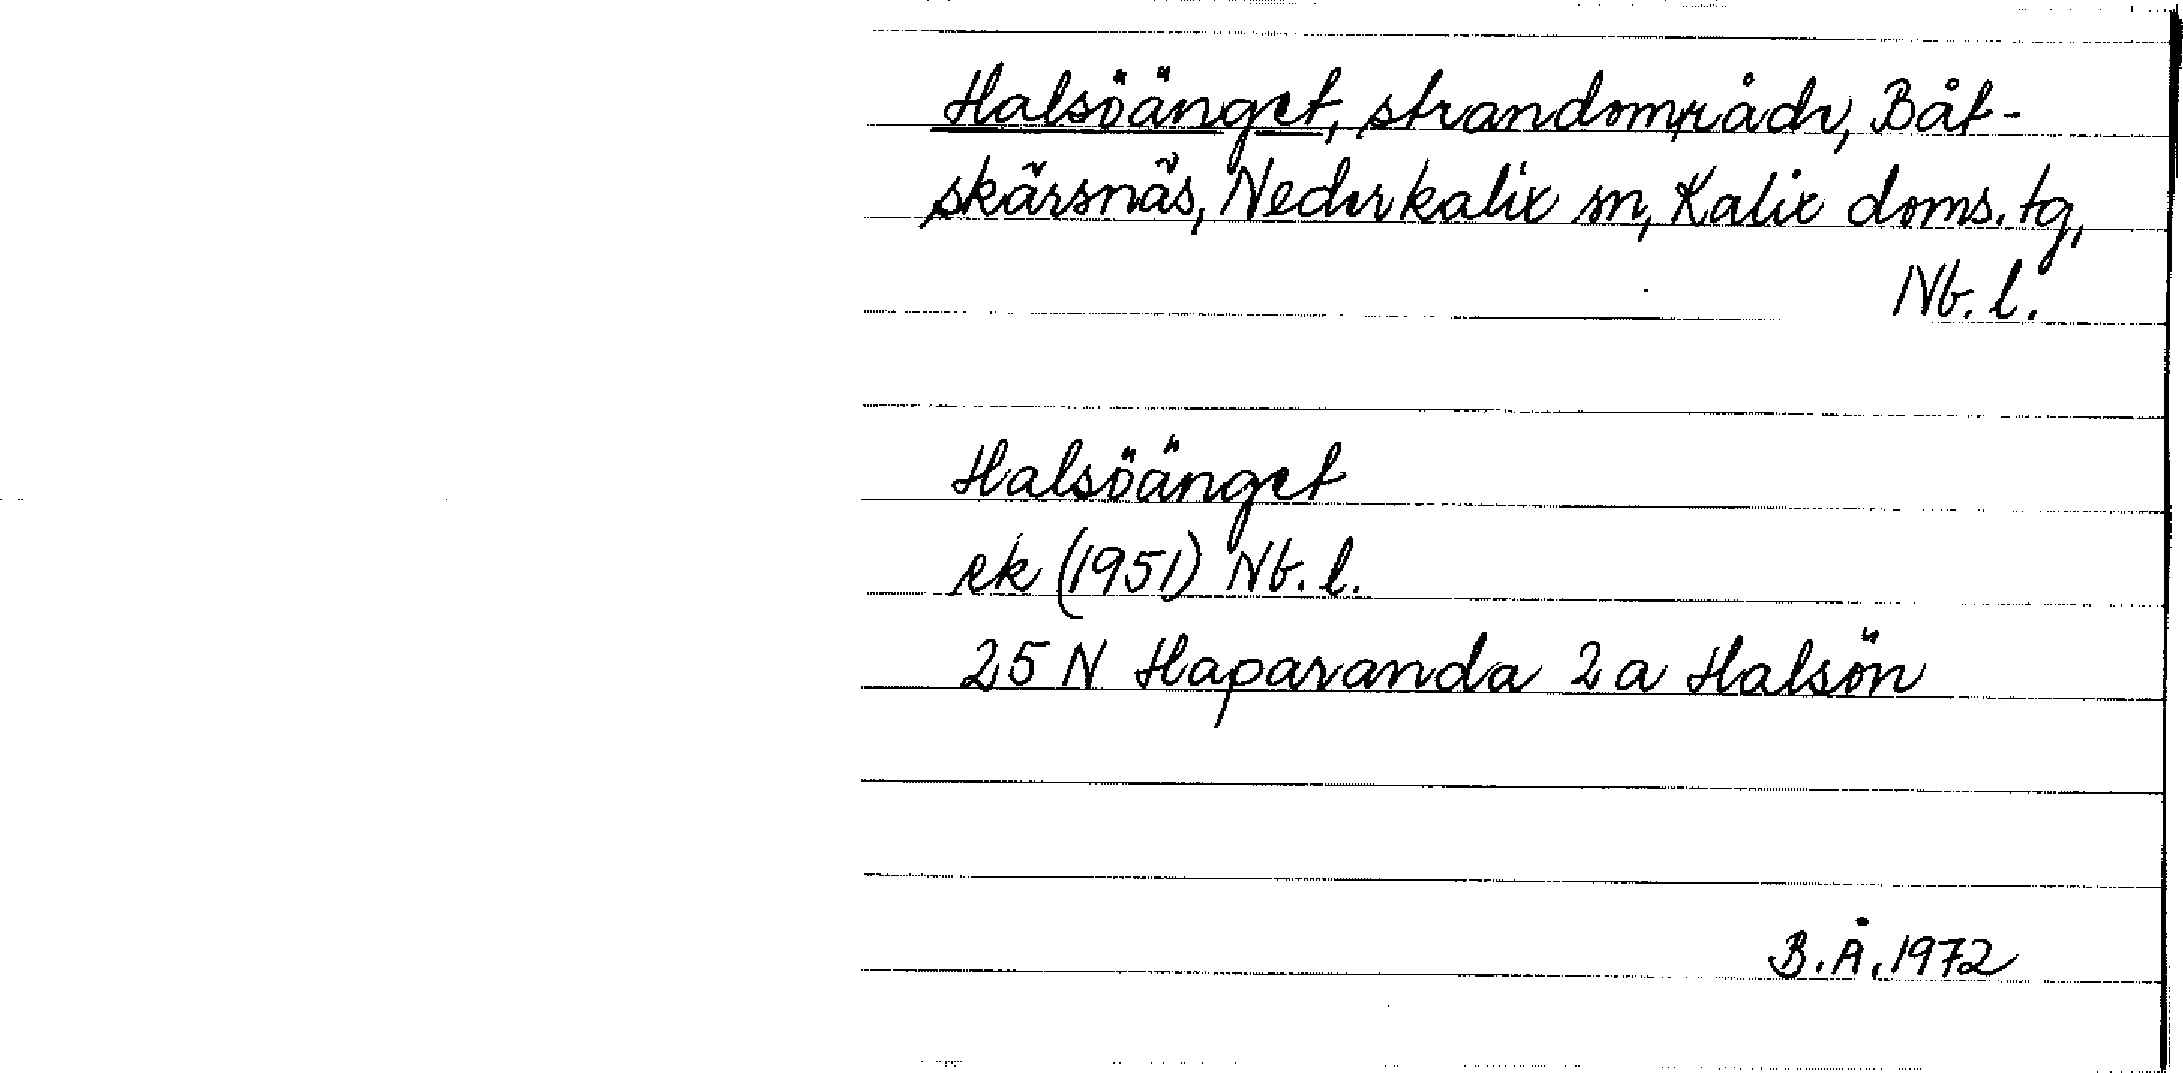 Halsöänget, strandområde, Båt-
skärsnäs, Nederkalix sn, Kalix doms. tg,
Nb. l.
Halsöänget
ek (1951) Nb. l.
25 N Haparanda 2a Halsön
B.Å. 1972